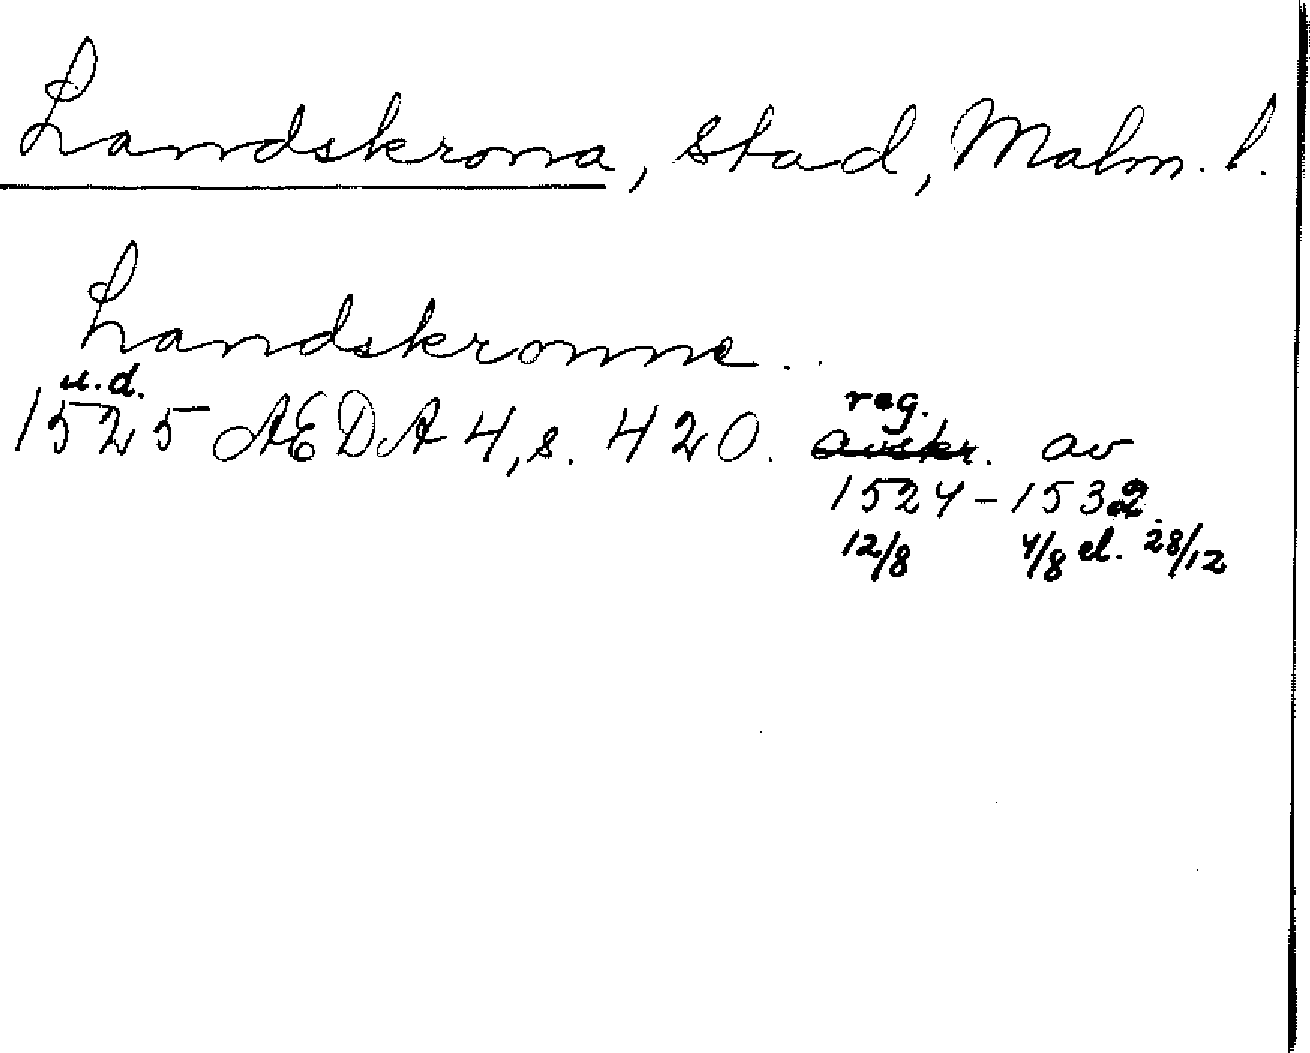 Landskrona, stad, Malm. l.
Landskronne.
u.d.
1525 AEDA 4, s. 420. avskr. av
reg.
1524-1532.
12/8 4/8 el. 28/12